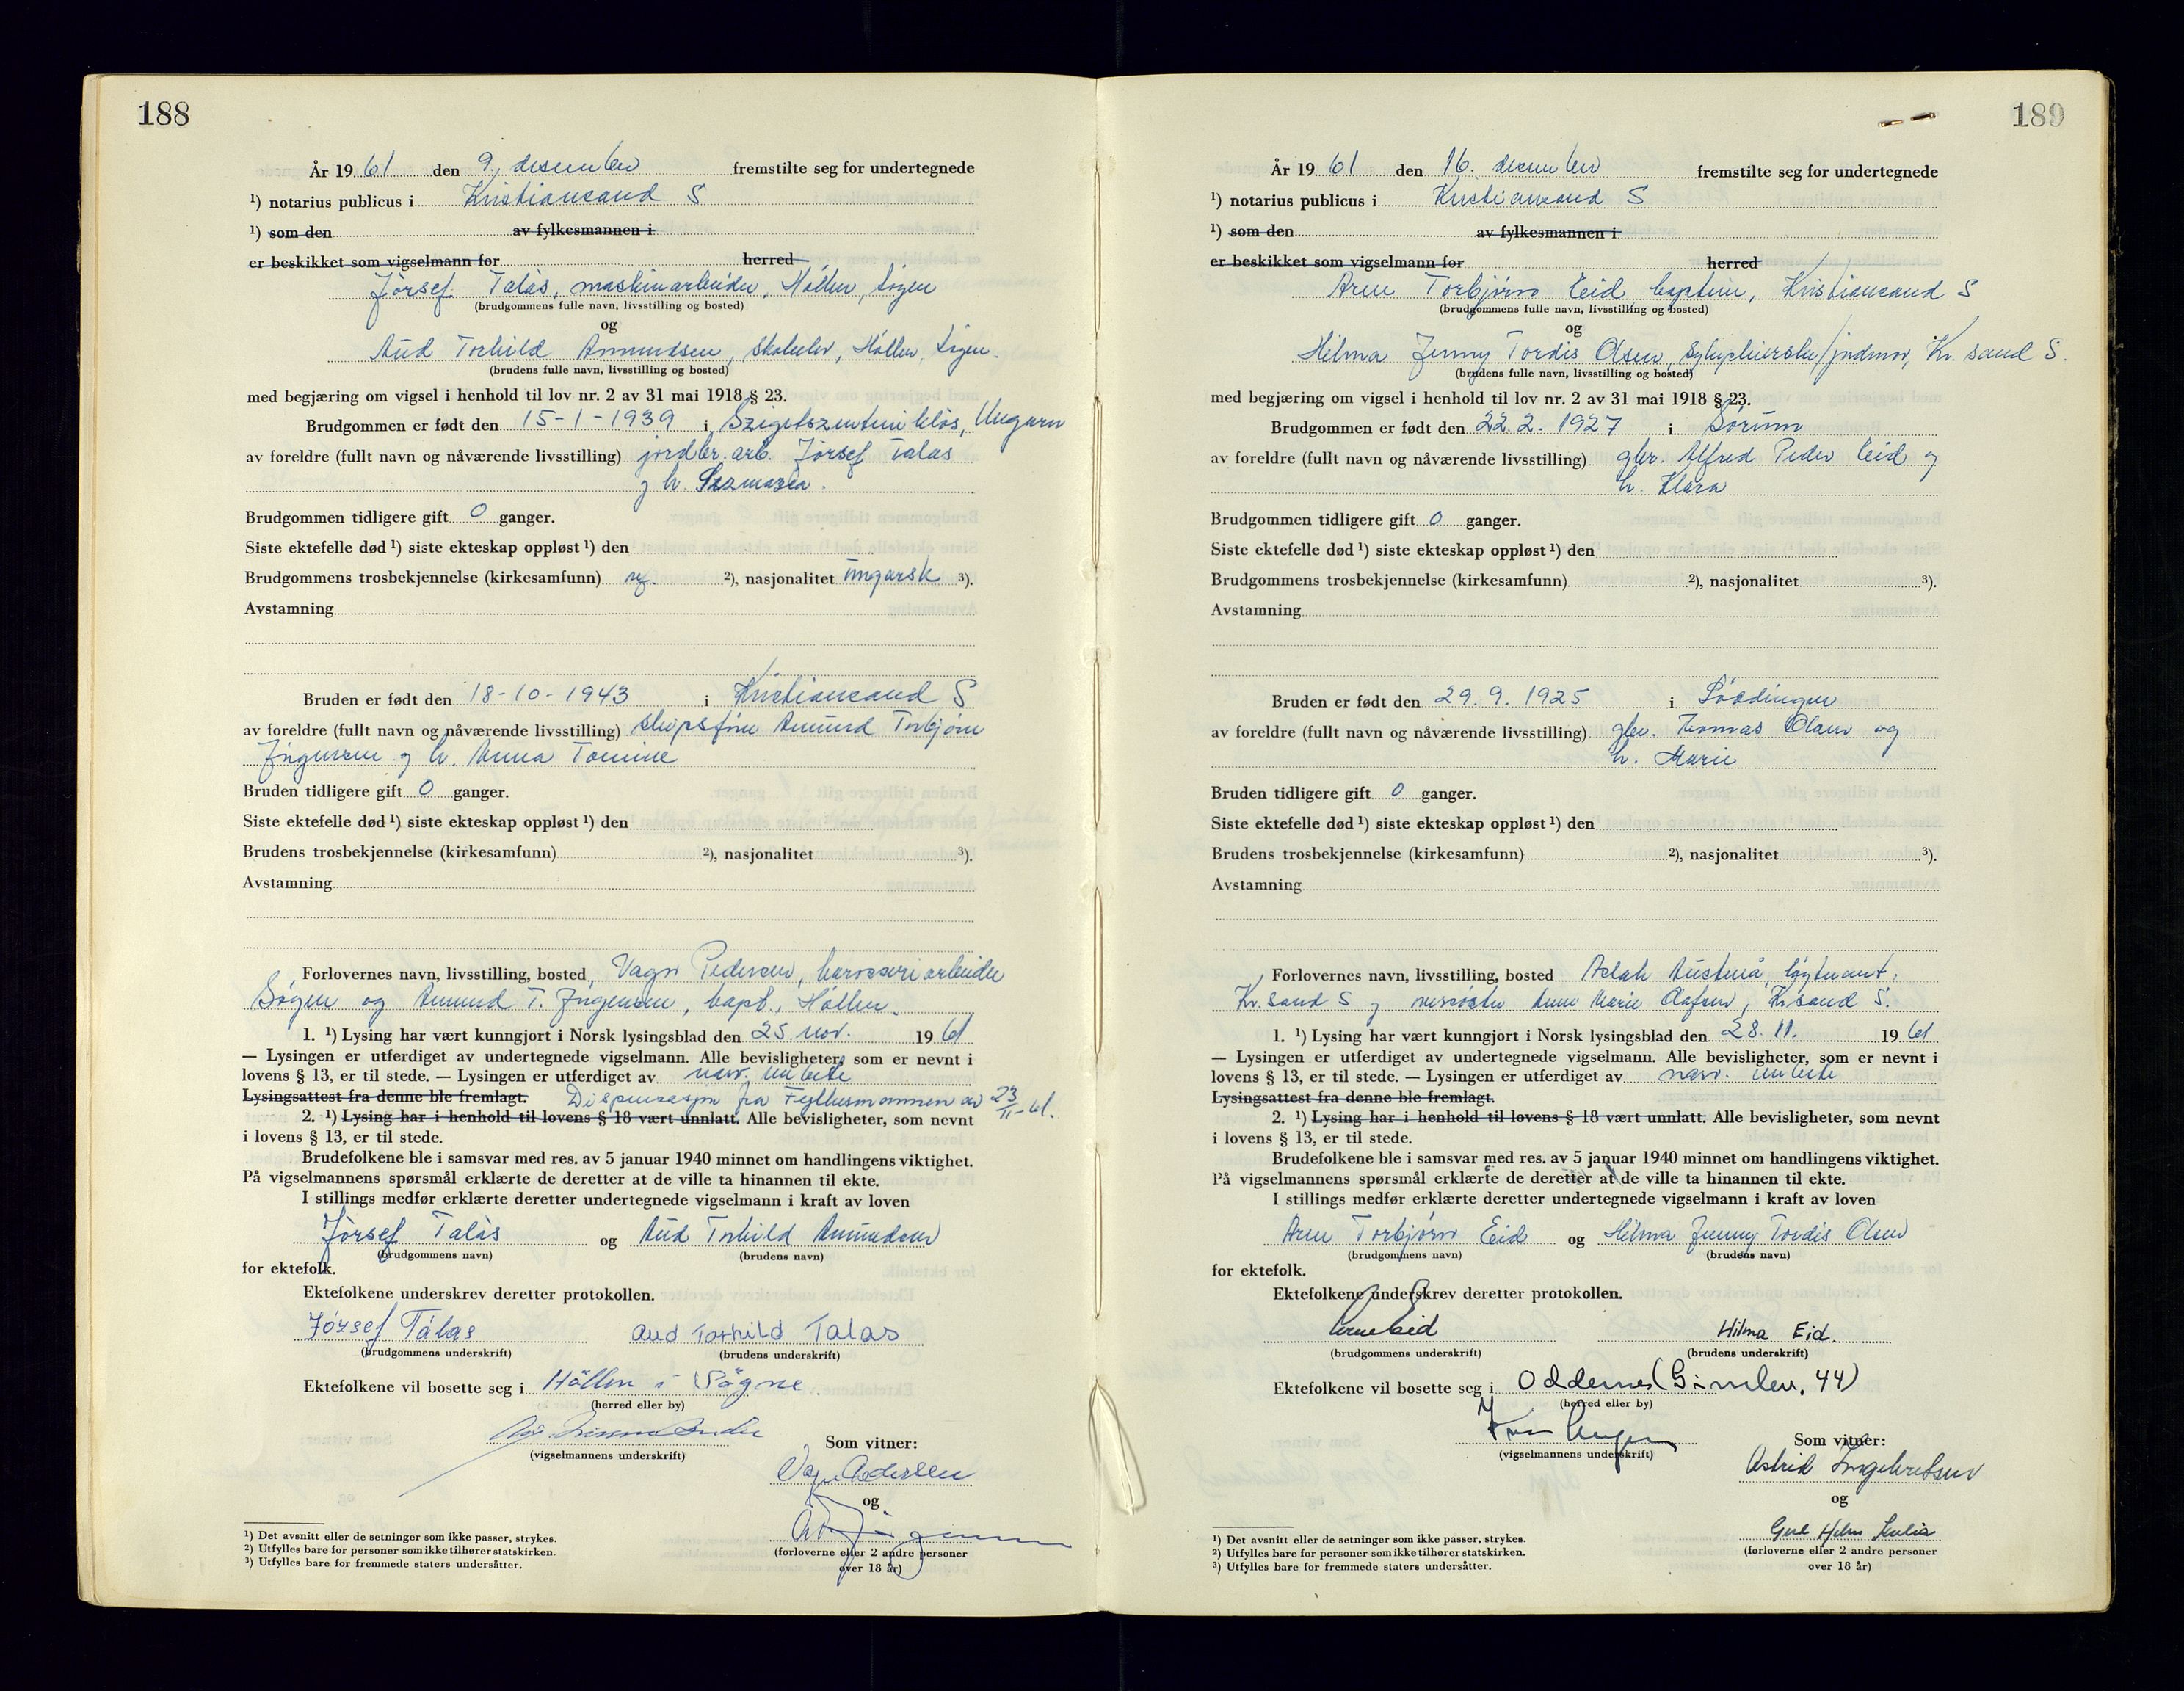 188
År 19 61 den 9. desember fremstilte seg for undertegnede
¹) notarius publicus i Kristiansand S
¹) som den av fylkesmannen i
er beskikket som vigselmann for herred
Jórsef Talás, maskinarbeider, Höllen, Søgne
(brudgommens fulle navn, livsstilling og bosted)
og
Aud Torhild Amundsen, skoleelev, Höllen, Søgne.
(brudens fulle navn, livsstilling og bosted)
med begjæring om vigsel i henhold til lov nr. 2 av 31 mai 1918 § 23.
Brudgommen er født den 15-1-1939 i Szigetszentmiklós, Ungarn
av foreldre (fullt navn og nåværende livsstilling) jordbr. arb. Jórsef Talas
og h.
Brudgommen tidligere gift 0 ganger.
Siste ektefelle død ¹) siste ekteskap oppløst ¹) den
Brudgommens trosbekjennelse (kirkesamfunn) ²), nasjonalitet ungarsk ³).
Avstamning
Bruden er født den 18-10-1943 i Kristiansand S
av foreldre (fullt navn og nåværende livsstilling) skipsfører Amund Torbjørn
Ingversen og h. Anna Tomine
Bruden tidligere gift 0 ganger.
Siste ektefelle død ¹) siste ekteskap oppløst ¹) den
Brudens trosbekjennelse (kirkesamfunn) ²), nasjonalitet ³).
Avstamning
Forlovernes navn, livsstilling, bosted Vagn Pedersen, karosseriarbeider
Søgne og Amund T. Ingversen, kapt., Höllen.
1. ¹) Lysing har vært kunngjort i Norsk lysingsblad den 25. nov. 19 61
— Lysingen er utferdiget av undertegnede vigselmann. Alle bevisligheter, som er nevnt i
lovens § 13, er til stede. — Lysingen er utferdiget av nærv. embete
Lysingsattest fra denne ble fremlagt. Dispensasjon fra Fylkesmannen av 23/11-61.
2. ¹) Lysing har i henhold til lovens § 18 vært unnlatt. Alle bevisligheter, som nevnt
i lovens § 13, er til stede.
Brudefolkene ble i samsvar med res. av 5 januar 1940 minnet om handlingens viktighet.
På vigselmannens spørsmål erklærte de deretter at de ville ta hinannen til ekte.
I stillings medfør erklærte deretter undertegnede vigselmann i kraft av loven
Jórsef Talás og Aud Torhild Amundsen
(brudgommens navn) (brudens navn)
for ektefolk.
Ektefolkene underskrev deretter protokollen.
József Tálas Aud Torhild Talas
(brudgommens underskrift) (brudens underskrift)
Ektefolkene vil bosette seg i Höllen i Søgne.
(herred eller by)
(vigselmannens underskrift)
Som vitner:
Vagn Pedersen
og
(forloverne eller 2 andre personer
over 18 år)
¹) Det avsnitt eller de setninger som ikke passer, strykes.
²) Utfylles bare for personer som ikke tilhører statskirken.
³) Utfylles bare for fremmede staters undersåtter.
189
År 19 61 den 16. desember fremstilte seg for undertegnede
¹) notarius publicus i Kristiansand S
¹) som den av fylkesmannen i
er beskikket som vigselmann for herred
Arne Torbjørn Eid kaptein, Kristiansand S
(brudgommens fulle navn, livsstilling og bosted)
og
Hilma Jenny Tordis Olsen, sykepleierske/jordmor, Kr. sand S.
(brudens fulle navn, livsstilling og bosted)
med begjæring om vigsel i henhold til lov nr. 2 av 31 mai 1918 § 23.
Brudgommen er født den 22.2. 1927 i Sørum
av foreldre (fullt navn og nåværende livsstilling) gbr. Alfred Peder Eid og
h. Klara
Brudgommen tidligere gift 0 ganger.
Siste ektefelle død ¹) siste ekteskap oppløst ¹) den
Brudgommens trosbekjennelse (kirkesamfunn) ²), nasjonalitet ³).
Avstamning
Bruden er født den 29.9. 1925 i Lødingen
av foreldre (fullt navn og nåværende livsstilling) gbr. Tomas Olsen og
h. Marie
Bruden tidligere gift 0 ganger.
Siste ektefelle død ¹) siste ekteskap oppløst ¹) den
Brudens trosbekjennelse (kirkesamfunn) ²), nasjonalitet ³).
Avstamning
Forlovernes navn, livsstilling, bosted Aslak Austenå, løytnant,
Kr. sand S og Anne Marie Olafsen, Kr. sand S.
1. ¹) Lysing har vært kunngjort i Norsk lysingsblad den 28. 11. 19 61
— Lysingen er utferdiget av undertegnede vigselmann. Alle bevisligheter, som er nevnt i
lovens § 13, er til stede. — Lysingen er utferdiget av nærv. embete
Lysingsattest fra denne ble fremlagt.
2. ¹) Lysing har i henhold til lovens § 18 vært unnlatt. Alle bevisligheter, som nevnt
i lovens § 13, er til stede.
Brudefolkene ble i samsvar med res. av 5 januar 1940 minnet om handlingens viktighet.
På vigselmannens spørsmål erklærte de deretter at de ville ta hinannen til ekte.
I stillings medfør erklærte deretter undertegnede vigselmann i kraft av loven
Arne Torbjørn Eid og Hilma Jenny Tordis Olsen
(brudgommens navn) (brudens navn)
for ektefolk.
Ektefolkene underskrev deretter protokollen.
Arne Eid Hilma Eid.
(brudgommens underskrift) (brudens underskrift)
Ektefolkene vil bosette seg i Oddernes (Gimlev. 44)
(herred eller by)
(vigselmannens underskrift)
Som vitner:
Astrid Ingebretsen
og
(forloverne eller 2 andre personer
over 18 år)
¹) Det avsnitt eller de setninger som ikke passer, strykes.
²) Utfylles bare for personer som ikke tilhører statskirken.
³) Utfylles bare for fremmede staters undersåtter.